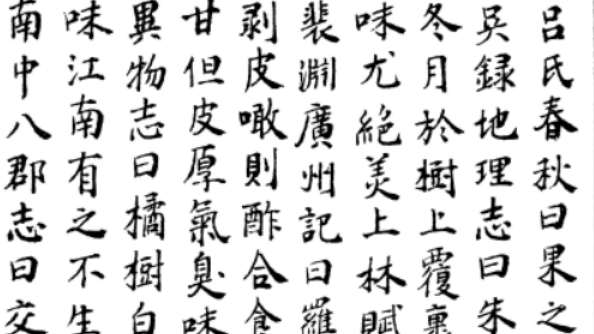 呂氏春秋曰果之
吳録地理志曰朱
冬月於樹上覆裹
味尤絕美上林賦
裴淵廣州記曰羅
剥皮噉則酢合食
甘但皮厚氣臭味
異物志曰橘樹白
味江南有之不生
南中八郡志曰交